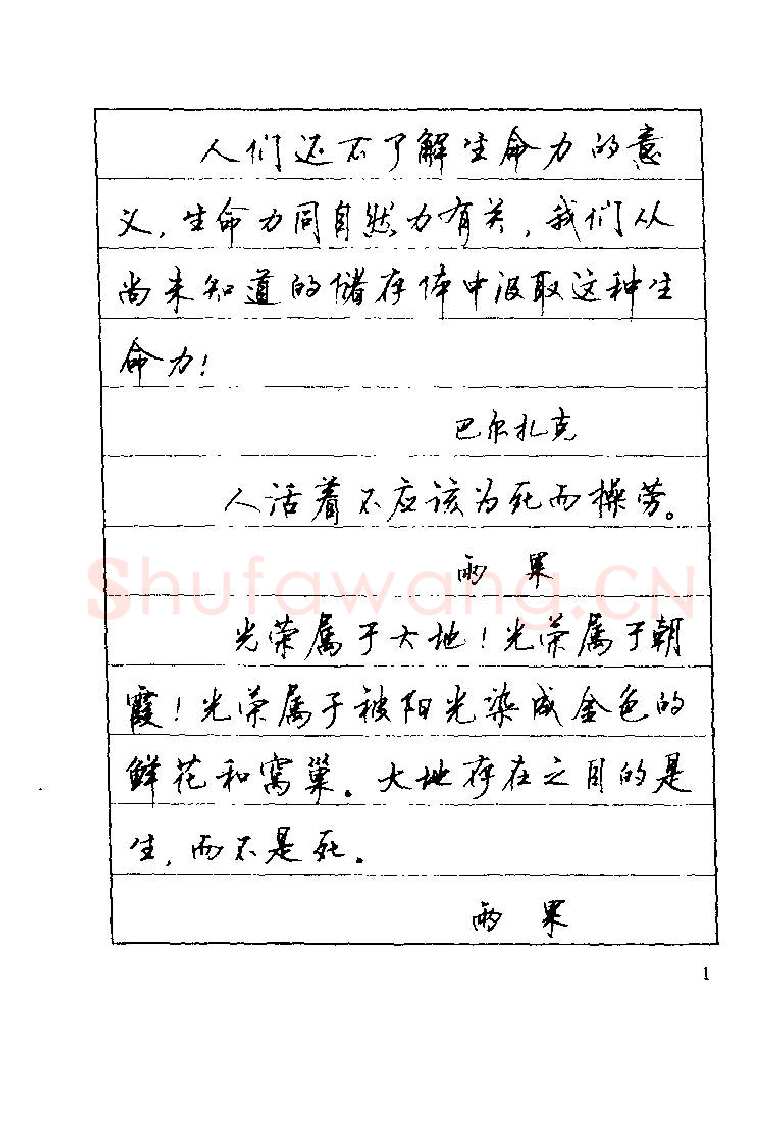 人们还不了解生命力的意
义，生命力同自然力有关，我们从
尚未知道的储存体中汲取这种生
命力！
巴尔扎克
人活着不应该为死而操劳。
雨果
Shufawang.CN
光荣属于大地！光荣属于朝
霞！光荣属于被阳光染成金色的
鲜花和窝巢。大地存在之目的是
生，而不是死。
雨果
1